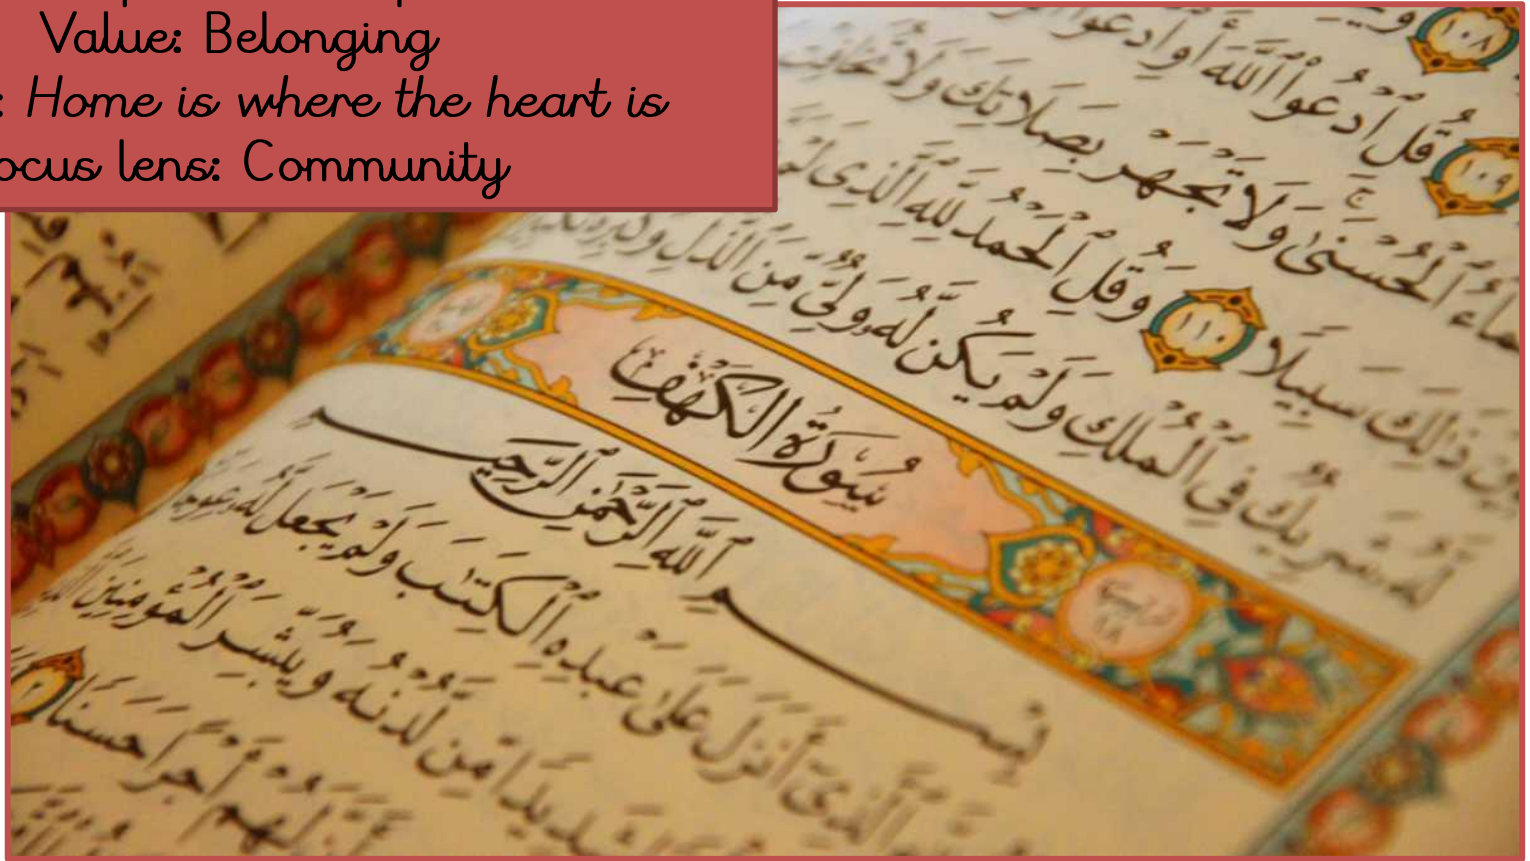 Value: Belonging
: Home is where the heart is
ocus lens: Community
١٠٨
١٠٩ قُلِ ٱدْعُوا۟ ٱللَّهَ أَوِ ٱدْعُوا۟
مَآءُ ٱلْحُسْنَىٰ ۚ وَلَا تَجْهَرْ بِصَلَاتِكَ وَلَا تُخَافِتْ
بَيْنَ ذَٰلِكَ سَبِيلًا ١١٠ وَقُلِ ٱلْحَمْدُ لِلَّهِ ٱلَّذِى لَمْ
لَّهُۥ شَرِيكٌ فِى ٱلْمُلْكِ وَلَمْ يَكُن لَّهُۥ وَلِىٌّ مِّنَ ٱلذُّلِّ وَكَبِّرْهُ
سُورَةُ الكَهْفِ
بِسْمِ ٱللَّهِ ٱلرَّحْمَٰنِ ٱلرَّحِيمِ
ٱلَّذِىٓ أَنزَلَ عَلَىٰ عَبْدِهِ ٱلْكِتَٰبَ وَلَمْ يَجْعَل لَّهُۥ عِوَجَا
شَدِيدًا مِّن لَّدُنْهُ وَيُبَشِّرَ ٱلْمُؤْمِنِينَ
أَنَّ لَهُمْ أَجْرًا حَسَنًا ٢